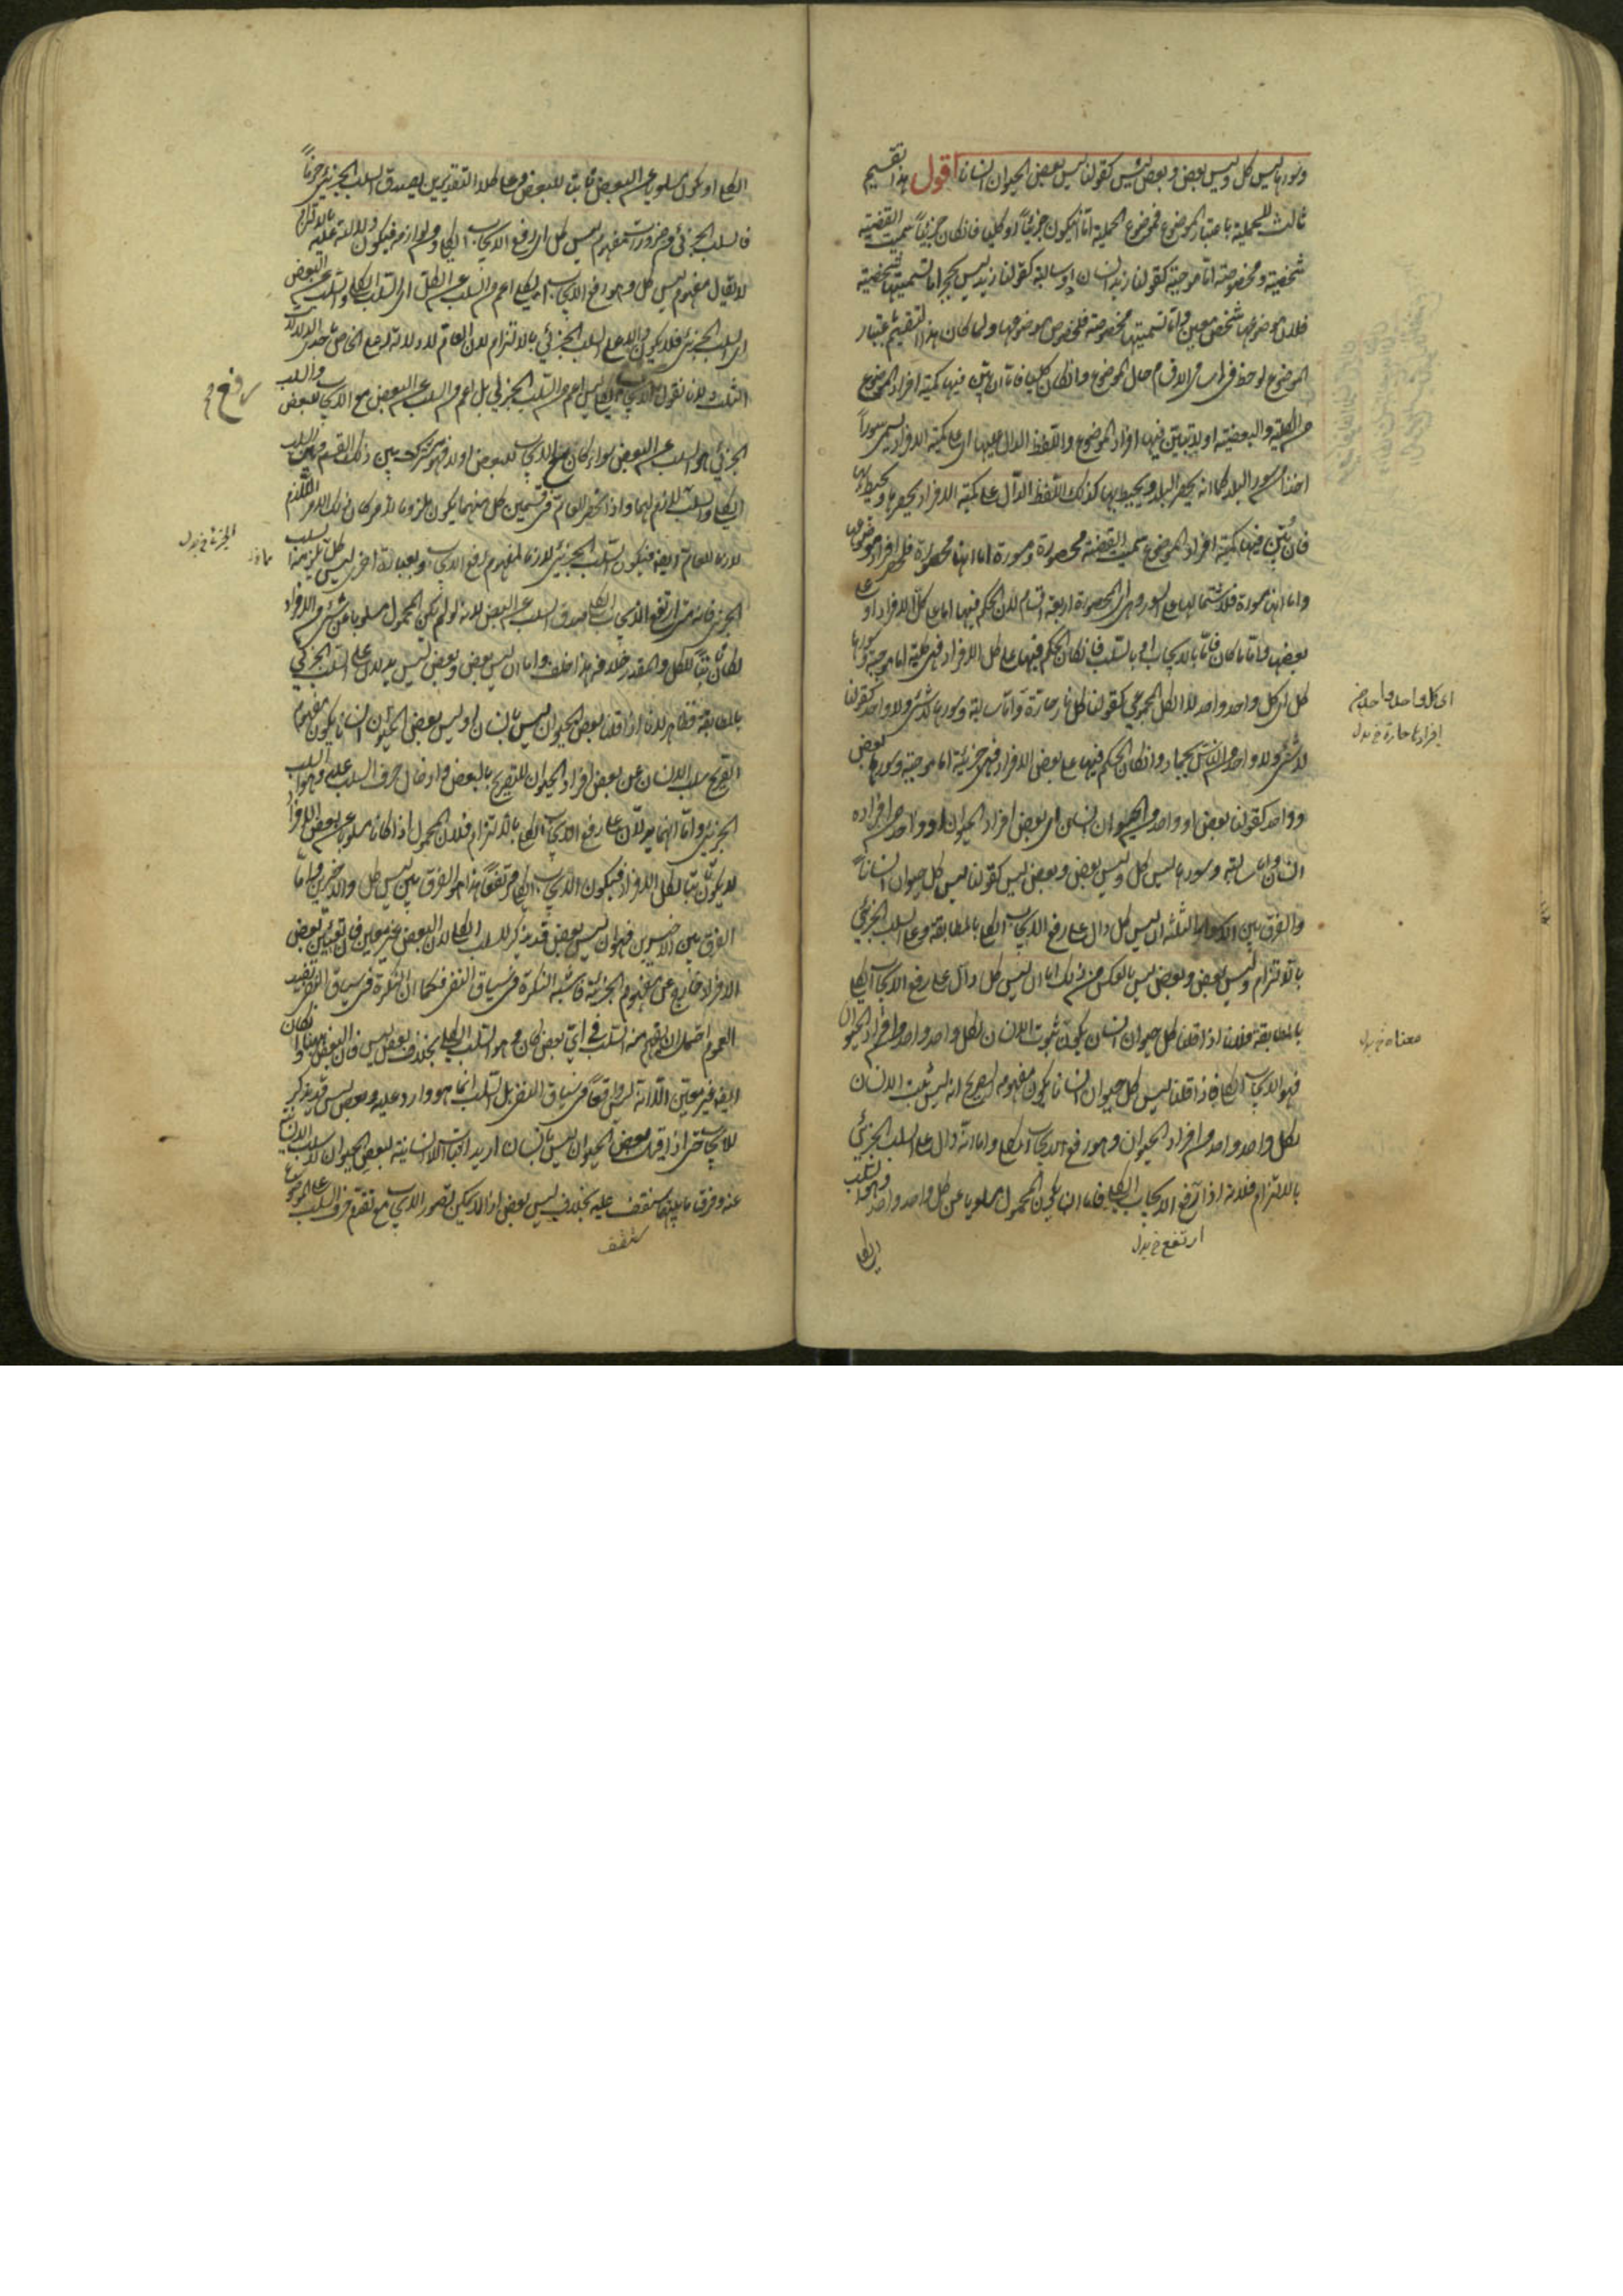 وسورها ليس كل وليس بعض وبعض ليس كقولنا ليس بعض الحيوان انسانا اقول هذا تقسيم
ثالث للحملية باعتبار الموضوع فموضوع الحملية اما ان يكون جزئيا او كليا فان كان جزئيا سميت القضية
شخصية ومخصوصة اما موجبة كقولنا زيد انسان او سالبة كقولنا زيد ليس بحجر اما تسميتها شخصية
فلان موضوعها شخص معين واما تسميتها مخصوصة فلخصوص موضوعها ولما كان هذا التقسيم باعتبار
الموضوع لوحظ في اسامي الاقسام حال الموضوع وان كان كليا فاما ان يبين فيها كمية افراد الموضوع
من الكلية والبعضية او لا يتبين فيها افراد الموضوع واللفظ الدال عليها اى على كمية الافراد يسمى سورا
اخذا من سور البلد كما انه يحصر البلد ويحيط بها كذلك اللفظ الدال على كمية الافراد يحصرها ويحيط بها
فان بين فيها كمية افراد الموضوع سميت القضية محصورة ومسورة اما انها محصورة فلحصر افراد موضوعها
واما انها مسورة فلاشتمالها على السور وهى اى المحصورة اربعة اقسام لان الحكم فيها اما على كل الافراد او على
بعضها واياما كان فاما بالايجاب او بالسلب فان كان الحكم فيها على كل الافراد فهى كلية اما موجبة وسورها
كل اى كل واحد واحد لا الكل المجموعى كقولنا كل نار حارة واما سالبة وسورها لا شئ ولا واحد كقولنا
لا شئ ولا واحد من الناس بجماد وان كان الحكم فيها على بعض الافراد فهى جزئية اما موجبة وسورها بعض
وواحد كقولنا بعض او واحد من الحيوان انسان اى بعض افراد الحيوان او واحد من افراده
انسان واما سالبة وسورها ليس كل وليس بعض وبعض ليس كقولنا ليس كل حيوان انسانا
والفرق بين الاسوار الثلثة ان ليس كل دال على رفع الايجاب الكلى بالمطابقة وعلى السلب الجزئى
بالالتزام وليس بعض وبعض ليس بالعكس من ذلك اما ان ليس كل دال على رفع الايجاب الكلى
بالمطابقة فلانا اذا قلنا كل حيوان انسان يكون ثبوت الانسان لكل واحد واحد من افراد الحيوان
فهو الايجاب الكلى فاذا قلنا ليس كل حيوان انسانا يكون مفهومه الصريح انه ليس يثبت الانسان
لكل واحد واحد من افراد الحيوان وهو رفع الايجاب الكلى واما انه دال على السلب الجزئى
بالالتزام فلانه اذا رفع الايجاب الكلى فاما ان يكون المحمول مسلوبا عن كل واحد واحد وهو السلب
اى كل واحد واحد من
افرادها حارة خ بدل
معناه خ بدل
ارتفع خ بدل
الكلى
الكلى او يكون مسلوبا عن البعض ثابتا للبعض وعلى كلا التقديرين يصدق السلب الجزئى جزما
فالسلب الجزئى من ضروريات مفهوم ليس كل اى رفع الايجاب الكلى ومن لوازمه فيكون دلالته عليه بالالتزام
لا يقال مفهوم ليس كل وهو رفع الايجاب الكلى اعم من السلب عن الكل اى السلب الكلى والسلب عن البعض
اى السلب الجزئى فلا يكون دالا على السلب الجزئى بالالتزام لان العام لا دلالة له على الخاص باحدى الدلالات
الثلث لانا نقول رفع الايجاب الكلى ليس اعم من السلب الجزئى بل اعم من السلب عن البعض مع الايجاب للبعض والسلب
الجزئى هو السلب عن البعض سواء كان مع الايجاب للبعض او لا فهو مشترك بين ذلك القسم وبين السلب
الكلى والسلب لازم لهما واذا انحصر العام فى قسمين كل منهما يكون ملزوما لامر كان ذلك الامر اللازم
لازما للعام ايضا فيكون السلب الجزئى لازما لمفهوم رفع الايجاب وبعبارة اخرى ليس كل يلزمه السلب
الجزئى فانه متى ارتفع الايجاب الكلى صدق السلب عن البعض لانه لو لم يكن المحمول مسلوبا عن شئ من الافراد
لكان ثابتا للكل والمقدر خلافه هذا خلف واما ان ليس بعض وبعض ليس يدلان على السلب الجزئى
بالمطابقة فظاهر لانا اذا قلنا بعض الحيوان ليس بانسان او ليس بعض الحيوان انسانا يكون مفهومه
الصريح سلب الانسان عن بعض افراد الحيوان للتصريح بالبعض وادخال حرف السلب عليه وهو السلب
الجزئى واما انهما يدلان على رفع الايجاب الكلى بالالتزام فلان المحمول اذا كان مسلوبا عن بعض الافراد
لا يكون ثابتا لكل الافراد فيكون الايجاب الكلى مرتفعا هذا هو الفرق بين ليس كل والاخيرين واما
الفرق بين الاخيرين فهو ان ليس بعض قد يذكر للسلب الكلى لان البعض غير معين فان تعيين بعض
الافراد خارج عن مفهوم الجزئية فاشبه النكرة فى سياق النفى فكما ان النكرة فى سياق النفى تفيد
العموم احتمل ان يفهم منه السلب فى اى بعض كان وهو السلب الكلى بخلاف بعض ليس فان البعض ههنا وان كان
ايضا غير معين الا انه ليس واقعا فى سياق النفى بل السلب انما هو وارد عليه وبعض ليس قد يذكر
للايجاب حتى اذا قيل بعض الحيوان ليس بانسان اريد اثبات اللاانسانية لبعض الحيوان لا سلب الانسانية
عنه وفرق ما بينهما ستقف عليه بخلاف ليس بعض اذ لا يمكن تصور الايجاب مع تقدم حرف السلب على الموضوع
رفع
الجزئى خ بدل
ستقف